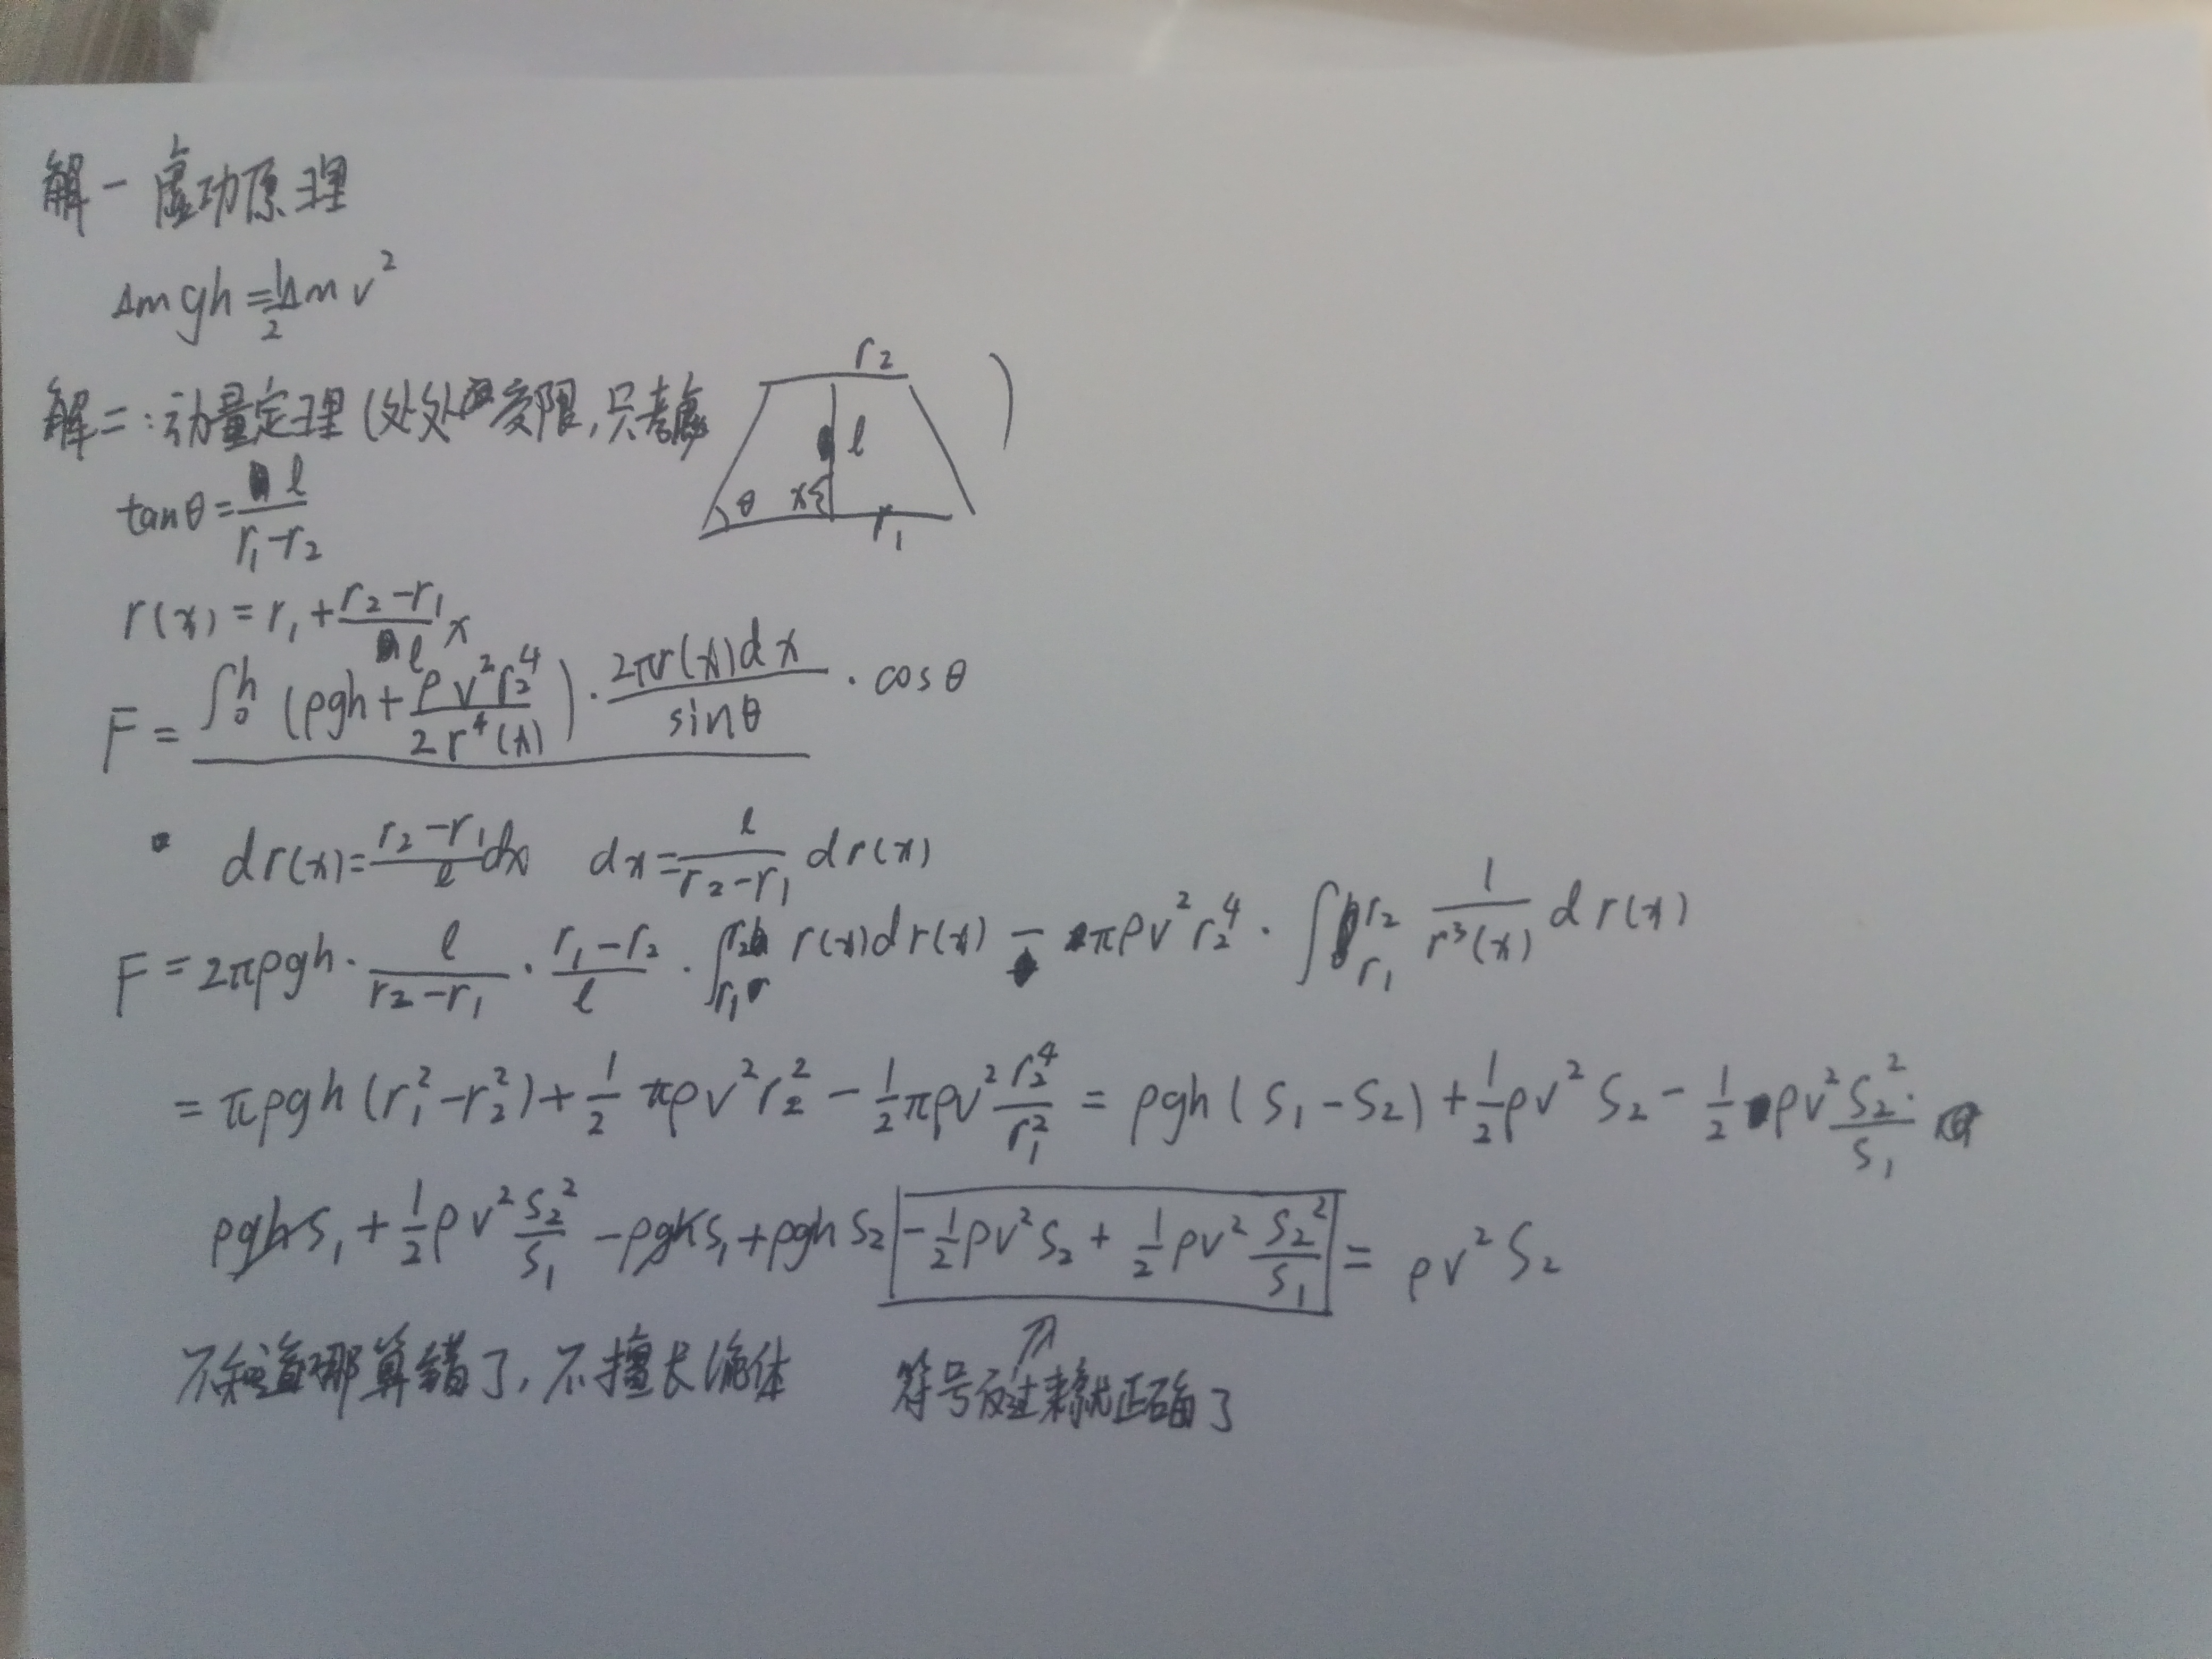 解一 虚功原理
Δmgh=½Δmv²
解二:动量定理(处处受限,只考虑 r₂ l θ x r₁ )
tanθ=l/(r₁-r₂)
r(x)=r₁+(r₂-r₁)/l x
F=∫₀ʰ(ρgh+ρv²r₂⁴/2r⁴(x))·2πr(x)dx/sinθ·cosθ
dr(x)=(r₂-r₁)/l dx dx=l/(r₂-r₁) dr(x)
F=2πρgh·l/(r₂-r₁)·(r₁-r₂)/l·∫_{r₁}^{r₂} r(x)dr(x) - πρv²r₂⁴·∫_{r₁}^{r₂} 1/r³(x) dr(x)
=πρgh(r₁²-r₂²)+½πρv²r₂²-½πρv² r₂⁴/r₁²=ρgh(S₁-S₂)+½ρv²S₂-½ρv² S₂²/S₁
ρghS₁+½ρv² S₂²/S₁-ρghS₁+ρghS₂-½ρv²S₂+½ρv² S₂²/S₁=ρv²S₂
不知道哪算错了,不擅长流体 符号反过来就正确了